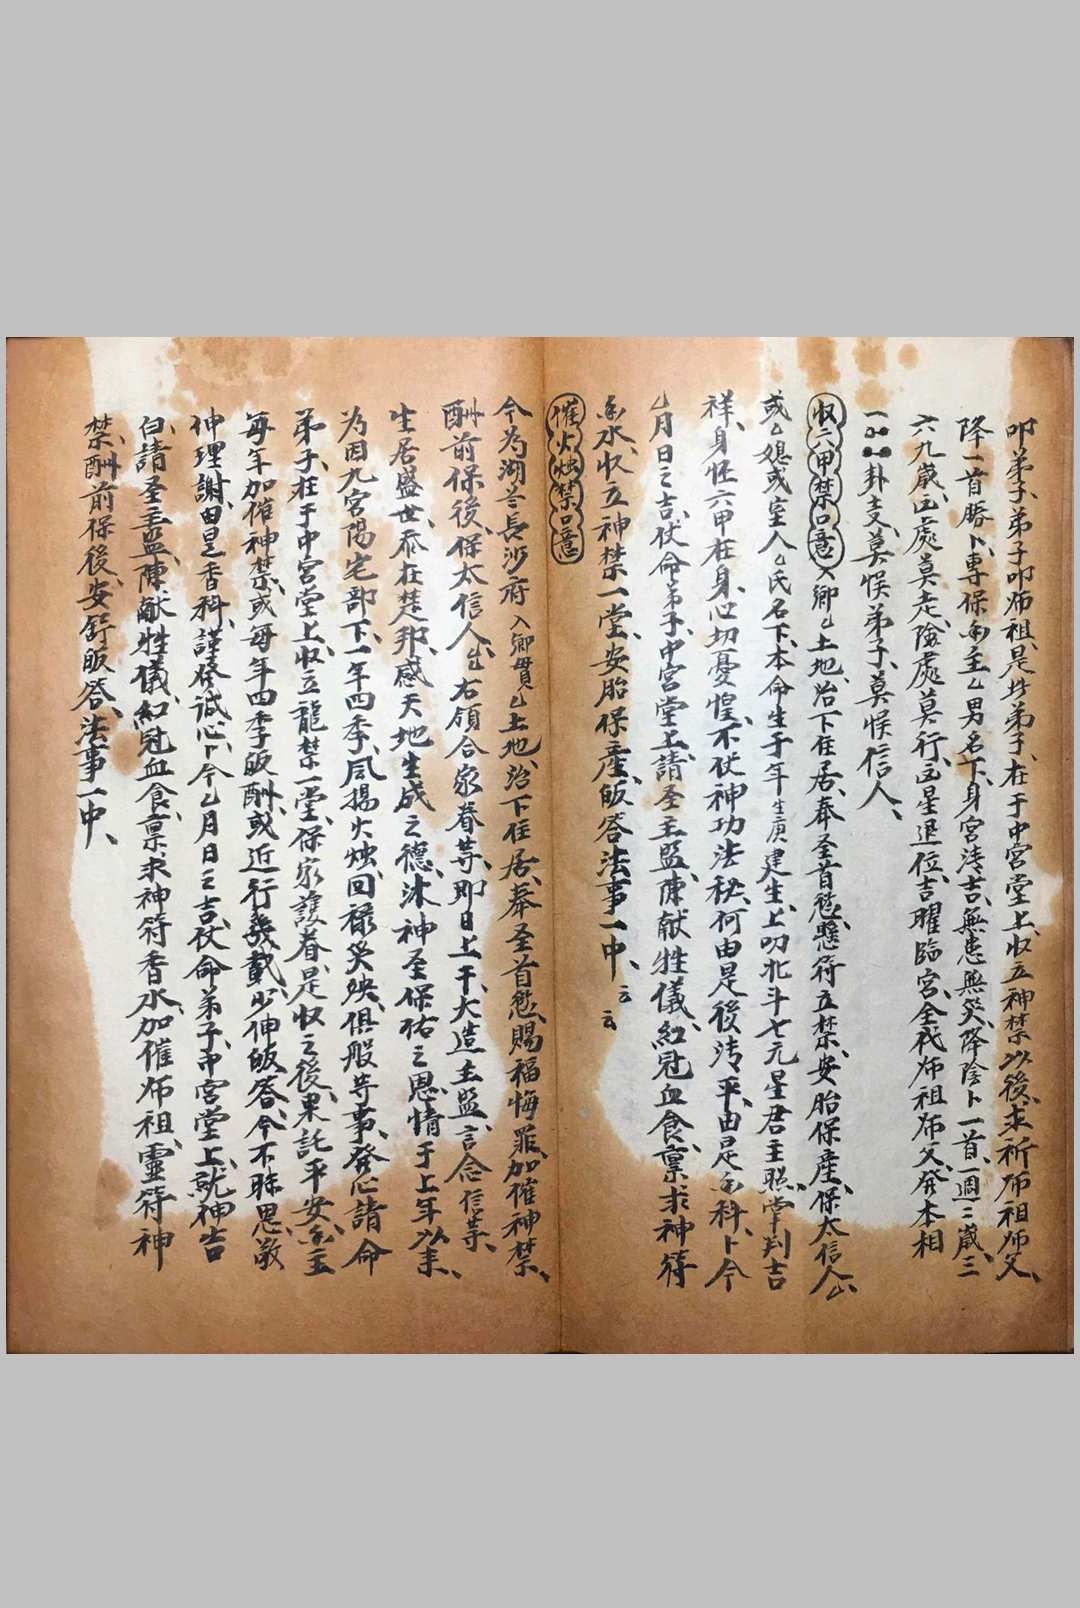 叩弟子、弟子叩师祖、是岁弟子、在于中宮堂上、収立神禁以後、求祈师祖师父、
降一首勝卜、專保𠆢主乙男名下、身宮清吉、無患無災、降陰卜一首、一週二歲、三
六九歲、凶處莫走、險處莫行、凶星退位、吉曜臨宮、全我师祖师父、發本相
一卦支、莫悮弟子、莫悮信人、
収六甲禁口意 入鄉乙土地、治下住居、奉圣首愆、懸符立禁、安胎保產、保太信人乙、
或乙媳或室人乙氏名下、本命生于年生庚建生、上叨北斗七元星君主照、掌判吉
祥、身怀六甲在身、心切憂惶、不伏神功法秘、何由是後清平、由是香科、卜今
乙月日之吉、伏命弟子、中宮堂上、請圣主盟、陳献牲儀、紅冠血食、禀求神符
香水、収立神禁一堂、安胎保產、皈答法事一中、云云
催火烛禁口意
今為湖䒑長沙府 入鄉貫乙土地、治下住居、奉圣首愆、賜福悔罪、加催神禁、
酬前保後、保太信人乙、右領合家眷等、即日上干大造主盟、言念信等、
生居盛世、忝在楚邦、感天地生成之德、沐神圣保佑之恩、情于上年以來、
為因九宮陽宅部下、一年四季、風揚火烛、回禄災殃、俱般等事、發心請命
弟子、在于中宮堂上、収立龍禁一堂、保家護眷、是収之後、果託平安、𠆢主
每年加催神禁、或每年四季皈酬、或近行幾載、少伸皈答、今不昧恩、敬
伸理謝、由是香科、謹條誠心、卜今乙月日之吉、伏命弟子、中宮堂上、就神告
白、請圣主盟、陳献牲儀、紅冠血食、禀求神符香水、加催师祖、靈符神
禁、酬前保後、安舒皈答、法事一中、